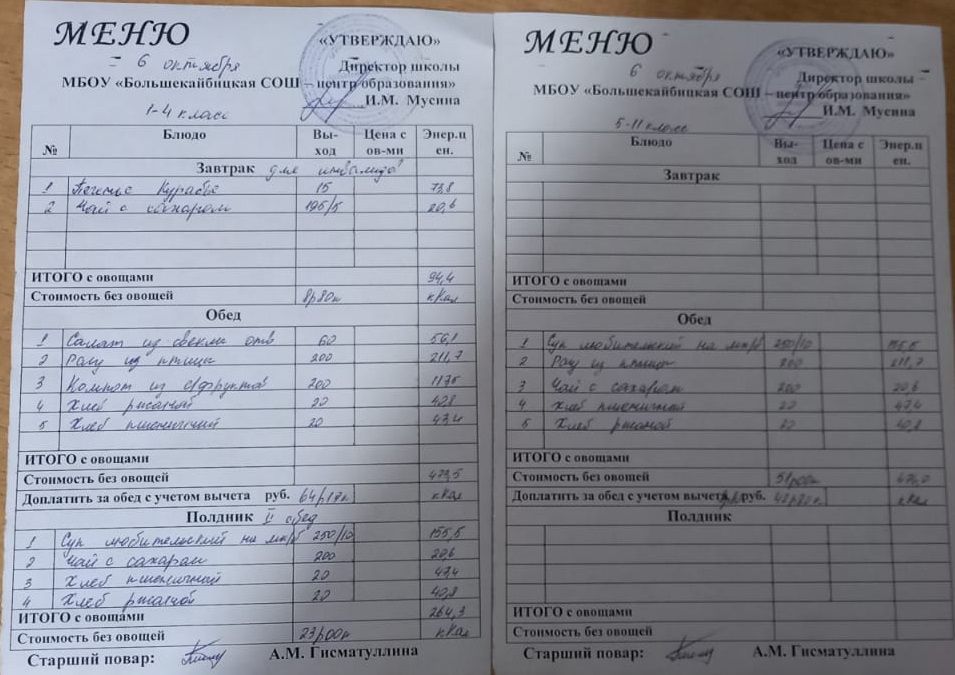 МЕНЮ
«УТВЕРЖДАЮ»
6 октября
Директор школы
МБОУ «Большекайбицкая СОШ – центр образования»
И.М. Мусина
1-4 класс
№ Блюдо Вы-ход Цена с ов-ми Энер.ц ен.
Завтрак для инвалидов
1 Печенье Курабье 15 73,8
2 Чай с сахаром 195/5 20,6
ИТОГО с овощами 94,4
Стоимость без овощей 8р80к кКал
Обед
1 Салат из свеклы отв 60 56,1
2 Рагу из птицы 200 211,7
3 Компот из с/фруктов 200 117,5
4 Хлеб ржаной 20 40,8
5 Хлеб пшеничный 20 47,4
ИТОГО с овощами
Стоимость без овощей 473,5
Доплатить за обед с учетом вычета руб. кКал
Полдник II обед
1 Суп любительский на мк/б 250/10 155,5
2 Чай с сахаром 200 20,6
3 Хлеб пшеничный 20 47,4
4 Хлеб ржаной 20 40,8
ИТОГО с овощами 264,3
Стоимость без овощей 23р00к кКал
Старший повар: А.М. Гисматуллина
МЕНЮ
«УТВЕРЖДАЮ»
6 октября
Директор школы
МБОУ «Большекайбицкая СОШ – центр образования»
И.М. Мусина
5-11 класс
№ Блюдо Вы-ход Цена с ов-ми Энер.ц ен.
Завтрак
ИТОГО с овощами
Стоимость без овощей
Обед
1 Суп любительский на мк/б 250/10 155,5
2 Рагу из птицы 200 211,7
3 Чай с сахаром 200 20,6
4 Хлеб пшеничный 20 47,4
5 Хлеб ржаной 20 40,8
ИТОГО с овощами
Стоимость без овощей 51р00к
Доплатить за обед с учетом вычета руб. кКал
Полдник
ИТОГО с овощами
Стоимость без овощей
Старший повар: А.М. Гисматуллина